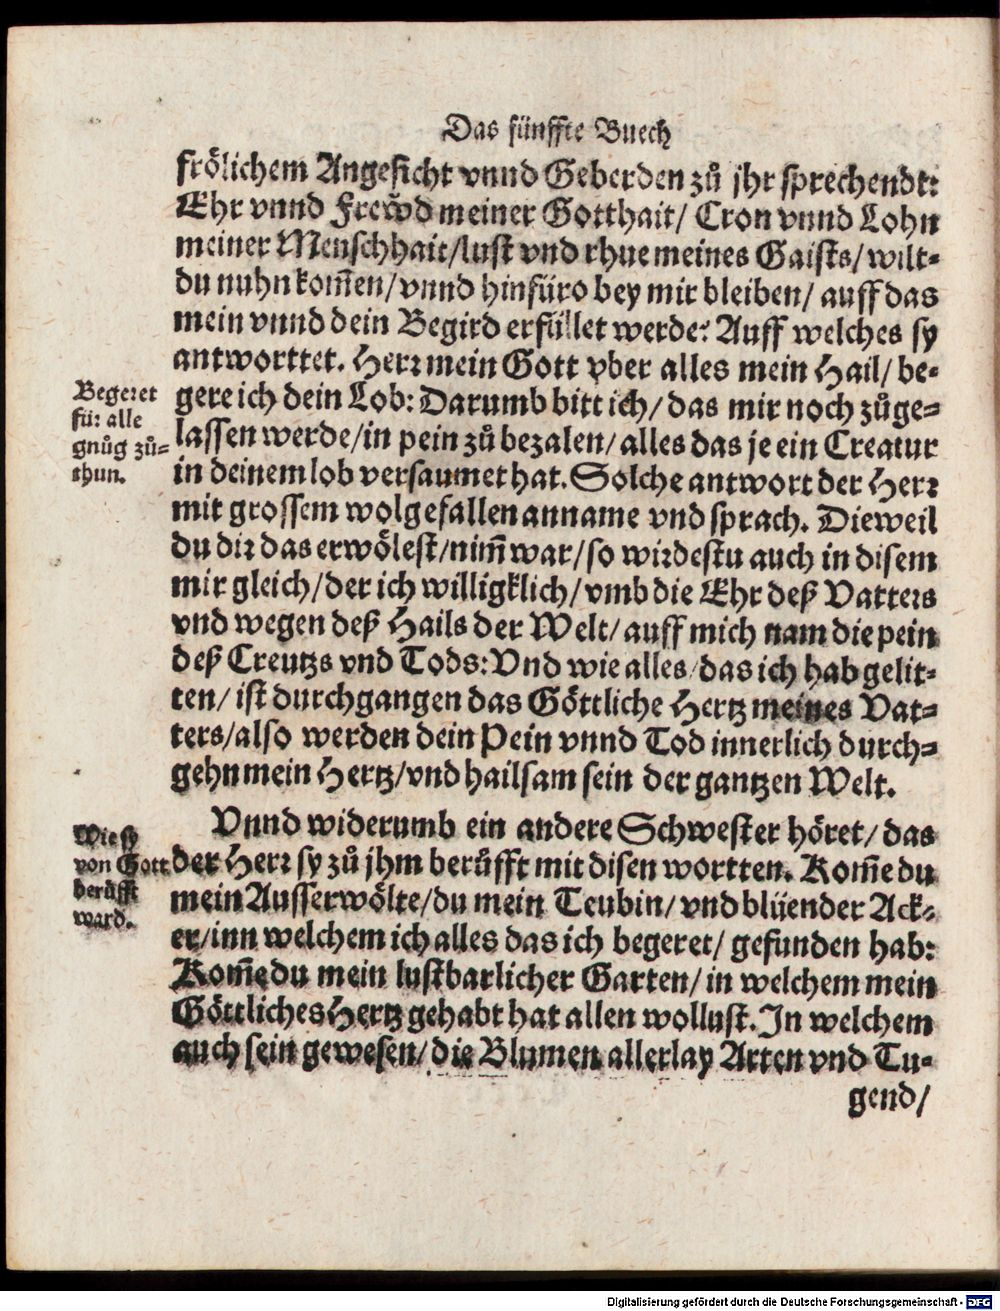 Das fünffte Buech
frölichem Angesicht vnnd Geberden zů jhr sprechendt:
Ehr vnnd Frewd meiner Gotthait/ Cron vnnd Lohn
meiner Menschhait/lust vnd rhue meines Gaists/ wilt-
du nuhn kom̃en/vnnd hinfüro bey mir bleiben/ auff das
mein vnnd dein Begird erfüllet werde? Auff welches sy
antworttet. Herr mein Gott vber alles mein Hail/ be-
gere ich dein Lob: Darumb bitt ich/ das mir noch zůge-
lassen werde/in pein zů bezalen/ alles das je ein Creatur
in deinem lob versaumet hat. Solche antwort der Herr
mit grossem wolgefallen anname vnd sprach. Dieweil
du dir das erwölest/nim̃ war/so wirdestu auch in disem
mir gleich/der ich willigklich/ vmb die Ehr deß Vatters
vnd wegen deß Hails der Welt/ auff mich nam die pein
deß Creutzs vnd Tods: Vnd wie alles/das ich hab gelit-
ten/ ist durchgangen das Göttliche Hertz meines Vat-
ters/also werden dein Pein vnnd Tod innerlich durch-
gehn mein Hertz/vnd hailsam sein der gantzen Welt.
Begeret
für alle
gnůg zů-
thun.
Vnnd widerumb ein andere Schwester höret/ das
der Herr sy zů jhm berůfft mit disen wortten. Kom̃e du
mein Ausserwölte/du mein Teubin/ vnd blüender Ack-
er/inn welchem ich alles das ich begeret/ gefunden hab:
Kom̃e du mein lustbarlicher Garten/ in welchem mein
Göttliches Hertz gehabt hat allen wollust. In welchem
auch sein gewesen/ die Blumen allerlay Arten vnd Tu-
gend/
Wie sy
von Gott
berůfft
ward.
Digitalisierung gefördert durch die Deutsche Forschungsgemeinschaft - DFG